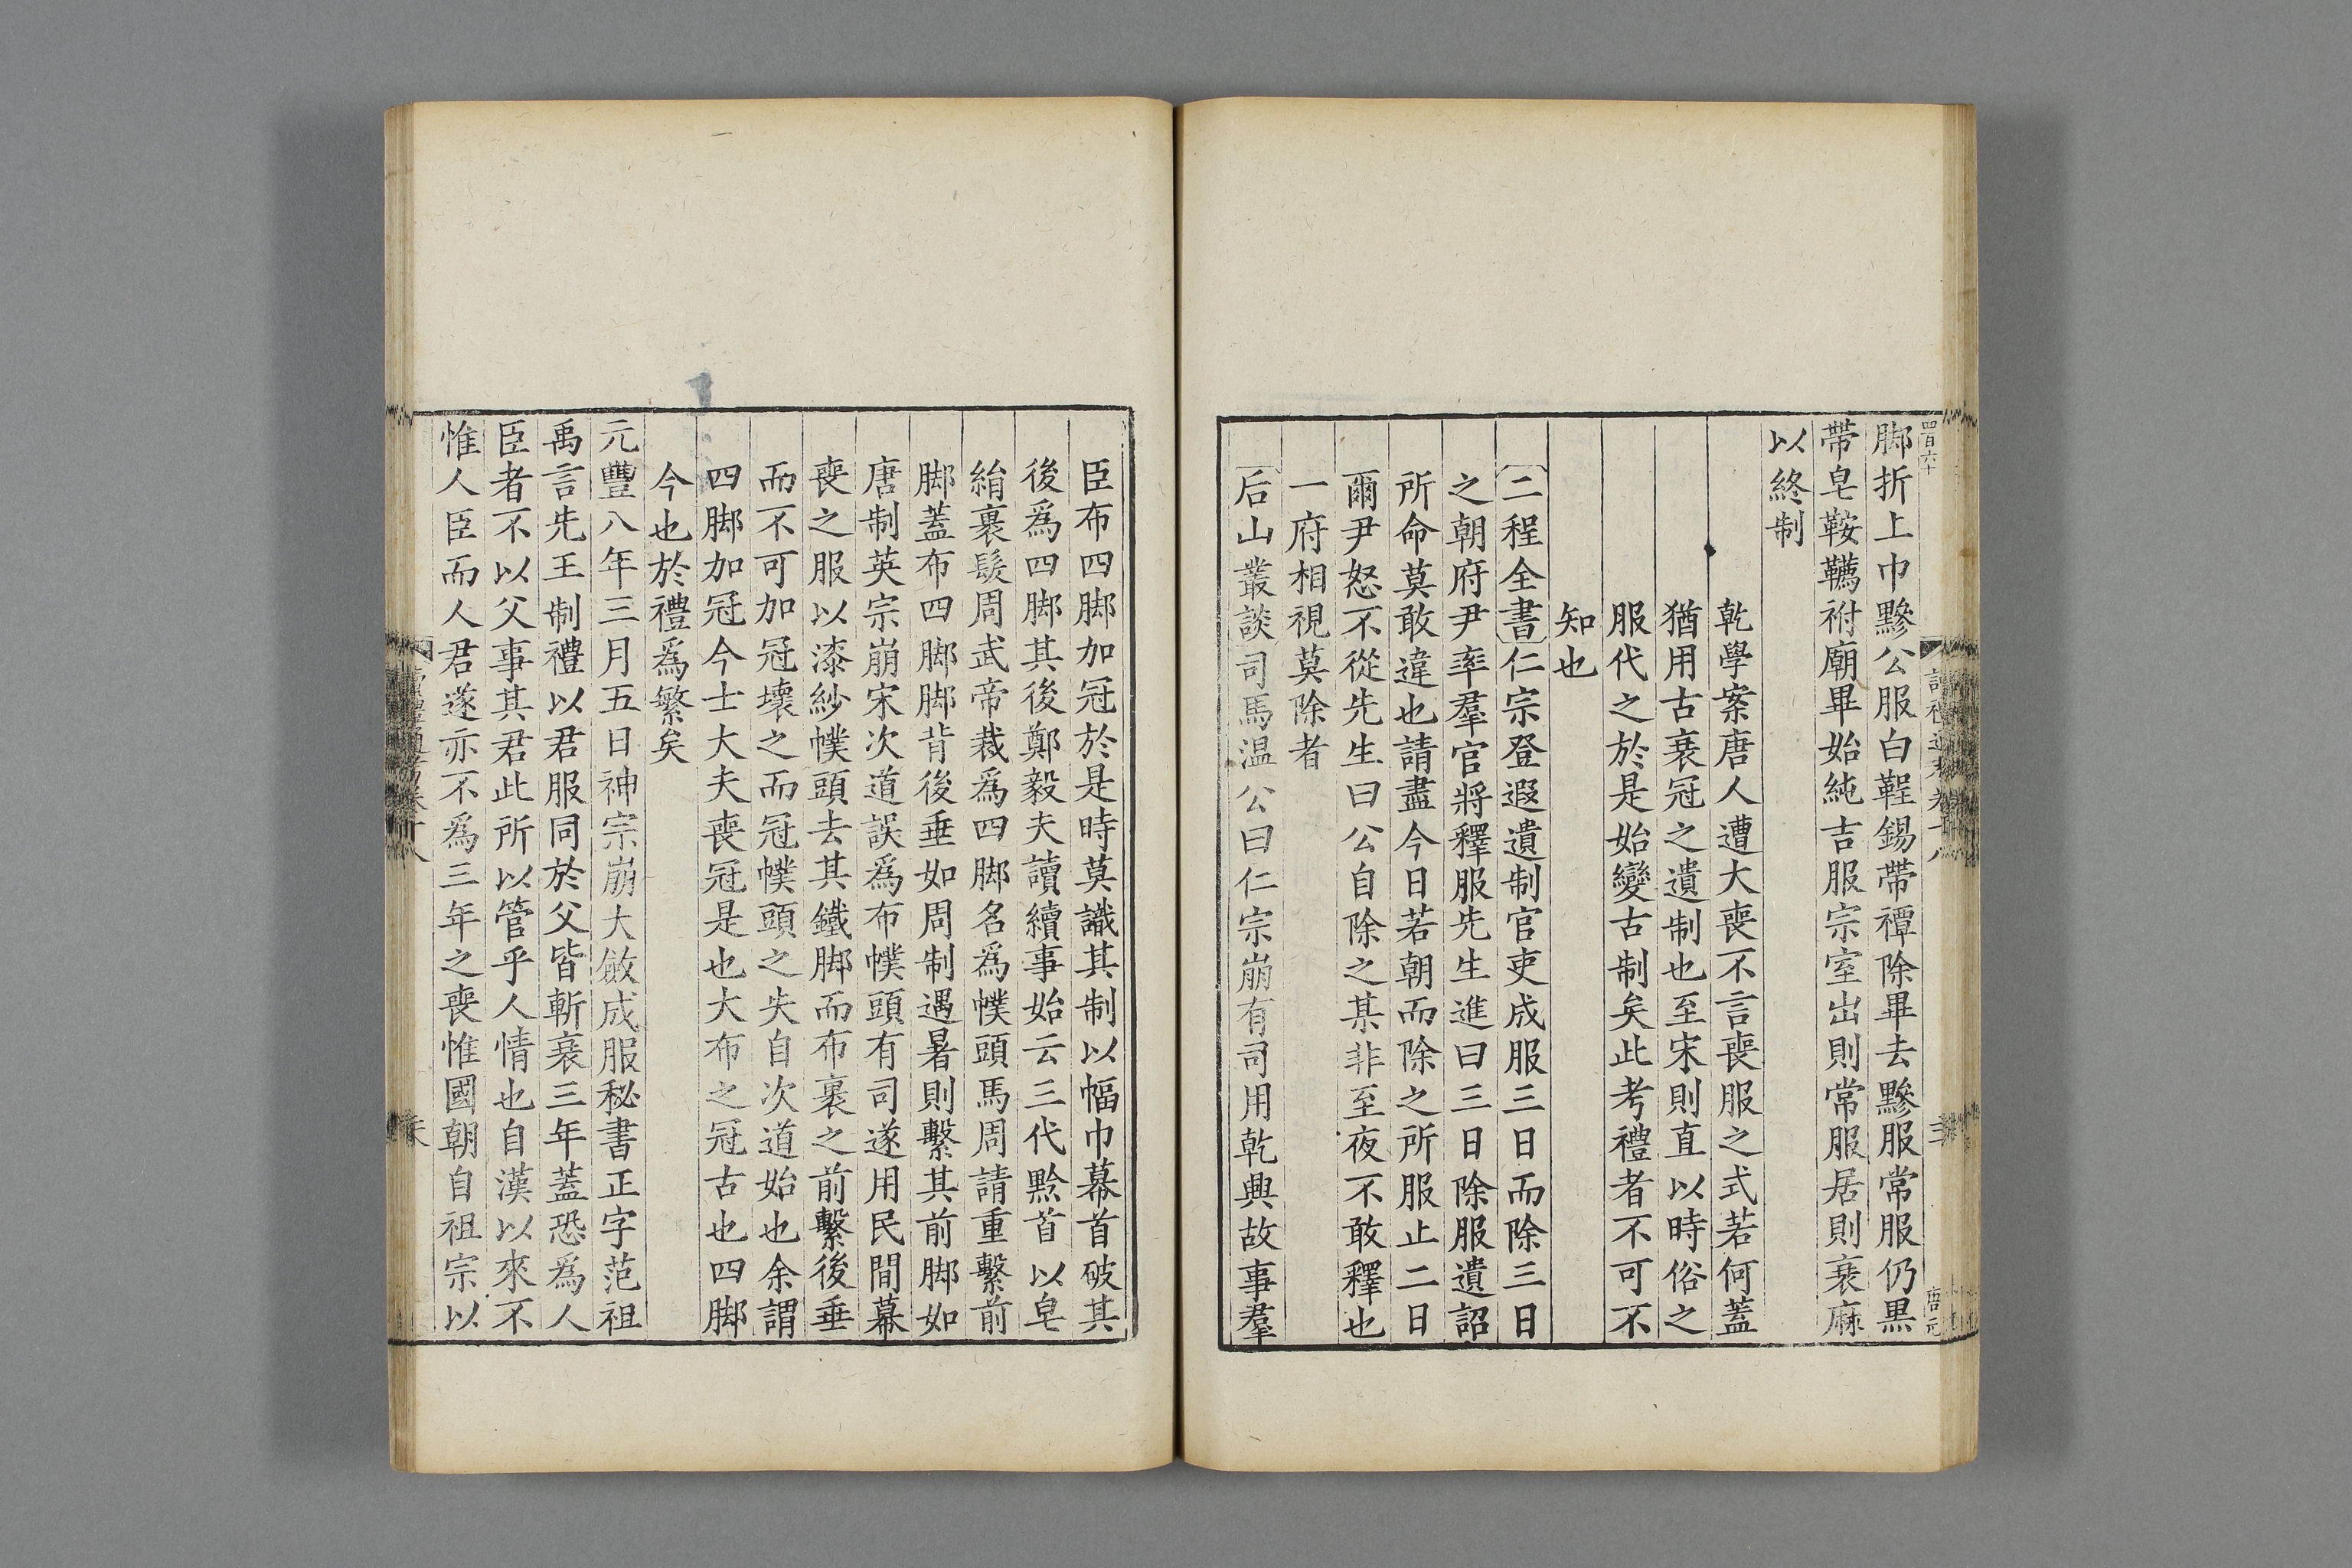 脚折上巾黲公服白鞓錫帶禫除畢去黲服常服仍黒
帶皂鞍韉祔廟畢始純吉服宗室出則常服居則衰麻
以終制
乾學案唐人遭大喪不言喪服之式若何蓋
猶用古衰冠之遺制也至宋則直以時俗之
服代之於是始變古制矣此考禮者不可不
知也
二程全書仁宗登遐遺制官吏成服三日而除三日
之朝府尹率羣官將釋服先生進曰三日除服遺詔
所命莫敢違也請盡今日若朝而除之所服止二日
爾尹怒不從先生曰公自除之某非至夜不敢釋也
一府相視莫除者
后山叢談司馬温公曰仁宗崩有司用乾興故事羣
臣布四脚加冠於是時莫識其制以幅巾幕首破其
後爲四脚其後鄭毅夫讀續事始云三代黔首以皂
絹裹髮周武帝裁爲四脚名爲幞頭馬周請重繫前
脚蓋布四脚脚背後垂如周制遇暑則繫其前脚如
唐制英宗崩宋次道誤爲布幞頭有司遂用民間幕
喪之服以漆紗幞頭去其鐵脚而布裹之前繫後垂
而不可加冠壞之而冠幞頭之失自次道始也余謂
四脚加冠今士大夫喪冠是也大布之冠古也四脚
今也於禮爲繁矣
元豐八年三月五日神宗崩大斂成服秘書正字范祖
禹言先王制禮以君服同於父皆斬衰三年蓋恐爲人
臣者不以父事其君此所以管乎人情也自漢以來不
惟人臣而人君遂亦不爲三年之喪惟國朝自祖宗以